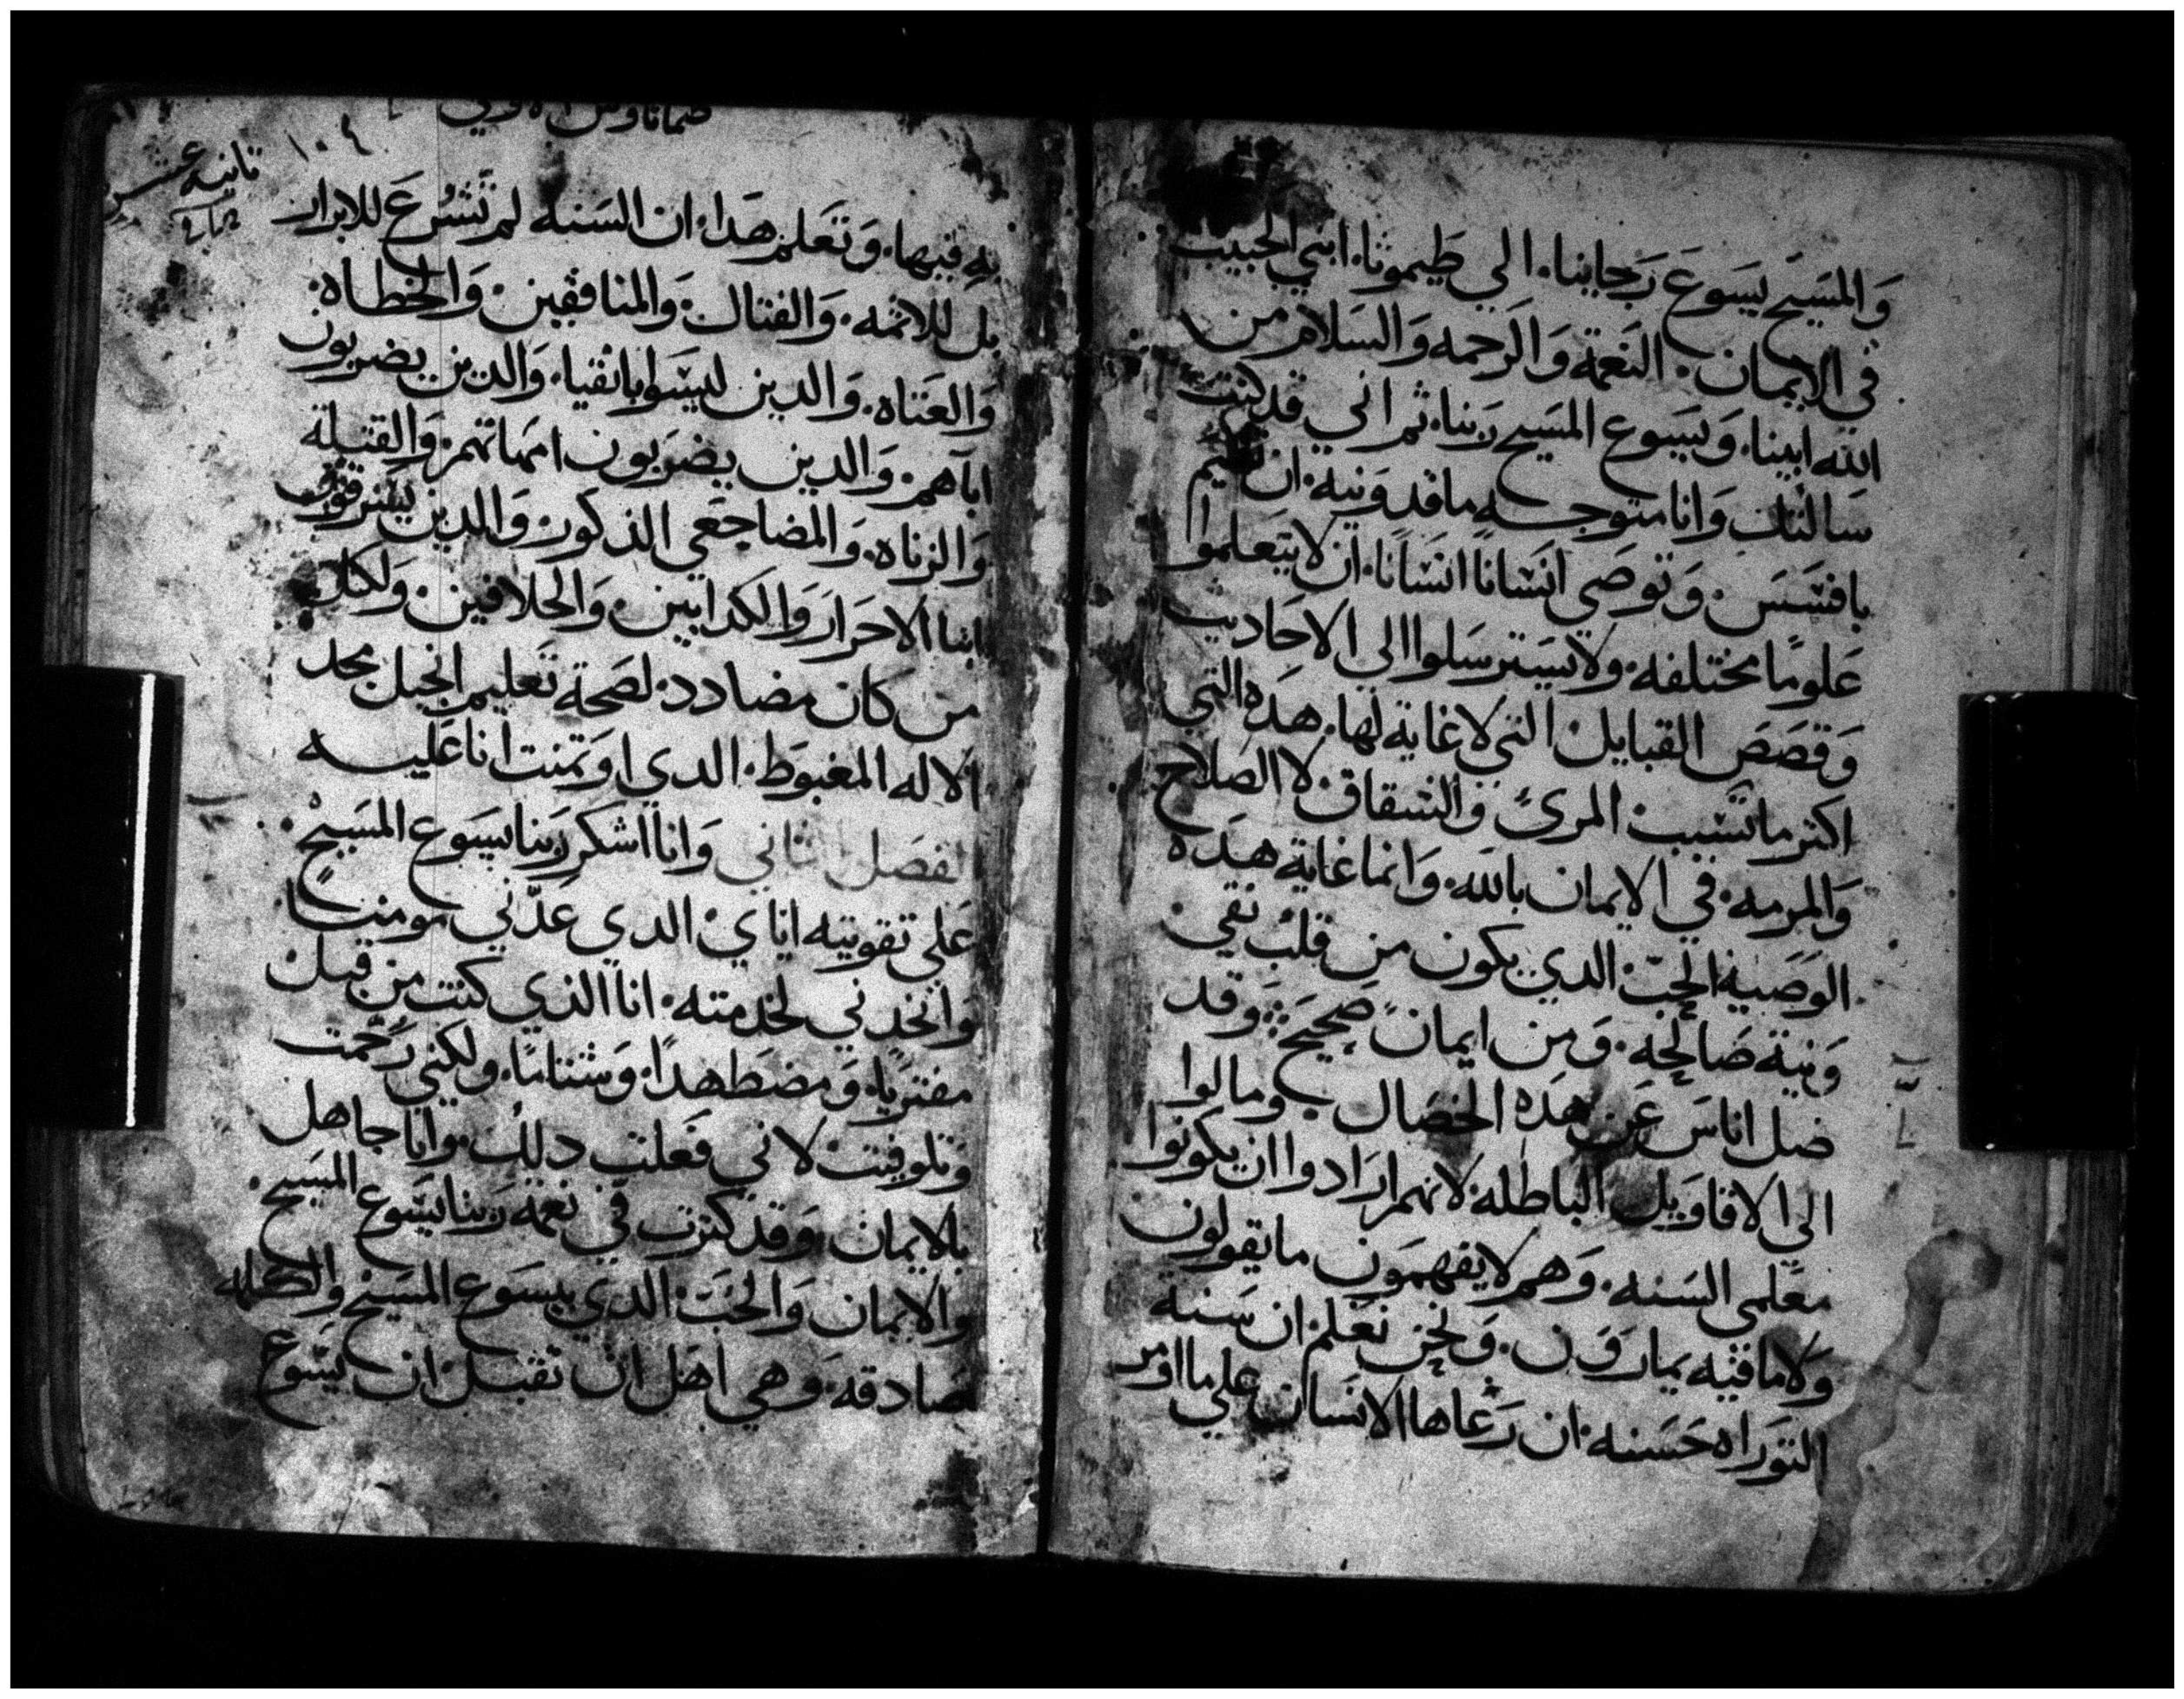 وَالمسَيح يسَوع رَجاينا. الي طيموثا. ابني الحبيب
في الايمان. النعَمة وَالرَحمه وَالسَلام من
الله ابينا. وَيسَوع المسَيح رَبنا. ثم اني قد كنت
سَالتك وَانا متوجـه ماقدونيه. ان تقيم
بافسَسَ. وَتوصَي انسَانًا انسَانًا. ان لا يتعَلموا
عَلومًا مختلفه. ولا يسَترسَلوا الي الاحَاديث
وَقصَصَ القبايل التي لا غاية لها. هدَه التي
اكتر ما تسَبب المرئ وَالشقاق. لا الصَلاح
وَالمرمه. في الايمان بالله. وَانما غاية هدَه
الوَصَيه الحبّ الدي يكون من قلبٍ نقي
وَنية صَالحه. وَمن ايمان صَحيحَ وَقد
ضل اناسَ عَن هدَه الخصَال. ومالوا
الي الاقاوَيل الباطله لانهم ارَادوا ان يكونوا
معَلمي السَنه. وَهم لا يفهمَون ما يقولون
وَلا ما فيه يمارَوَن. وَنحن نعَلم ان سَنة
التورَاه حَسَنه. ان رَعَاها الانسَان علي ما اومر
ثانيه عشر
١٠٤
به فيها. وَتعَلم هدَا. ان السَنه لم تُشرَع للابرار
بل للاثمه. وَالفتاك وَالمنافقين. وَالخطـاه.
وَالعَتاه. وَالدين ليسَوا باتقيا. وَالدين يضربون
اباهم. وَالدين يضرَبون امهاتهم. وَالقتلة
وَالزناه. وَالمضاجعَي الذكور. وَالدين يسَرقون
ابنا الاحرَار وَالكدابين. وَالحلافين. وَلكل
من كان مضادد. لصَحة تعَليم انجيل مجد
الالاه المغبوط. الدي اوَتمنت انا عَليـه
الفصَل الثاني وَانا اشكر رَبنا يسَوع المسَيح.
عَلي تقويته اياي. الدي عَدّني مومنـا.
وَاتخدني لخدمته. انا الذي كنت من قبل
مفتريًا. وَمضطهدًا. وَشتامًا. ولكني رَحمت
وَتلوفيت. لاني فعَلت دلك. وانا جاهل
بالايمان. وَقد كثرت فيّ نعَمة رَبنا يسَوع المسَيح.
والايمان وَالحبَ الدي بيسَوع المسَيح والكلمه
صَادقه. وَهي اهَل ان تقبـل. ان يسَوع